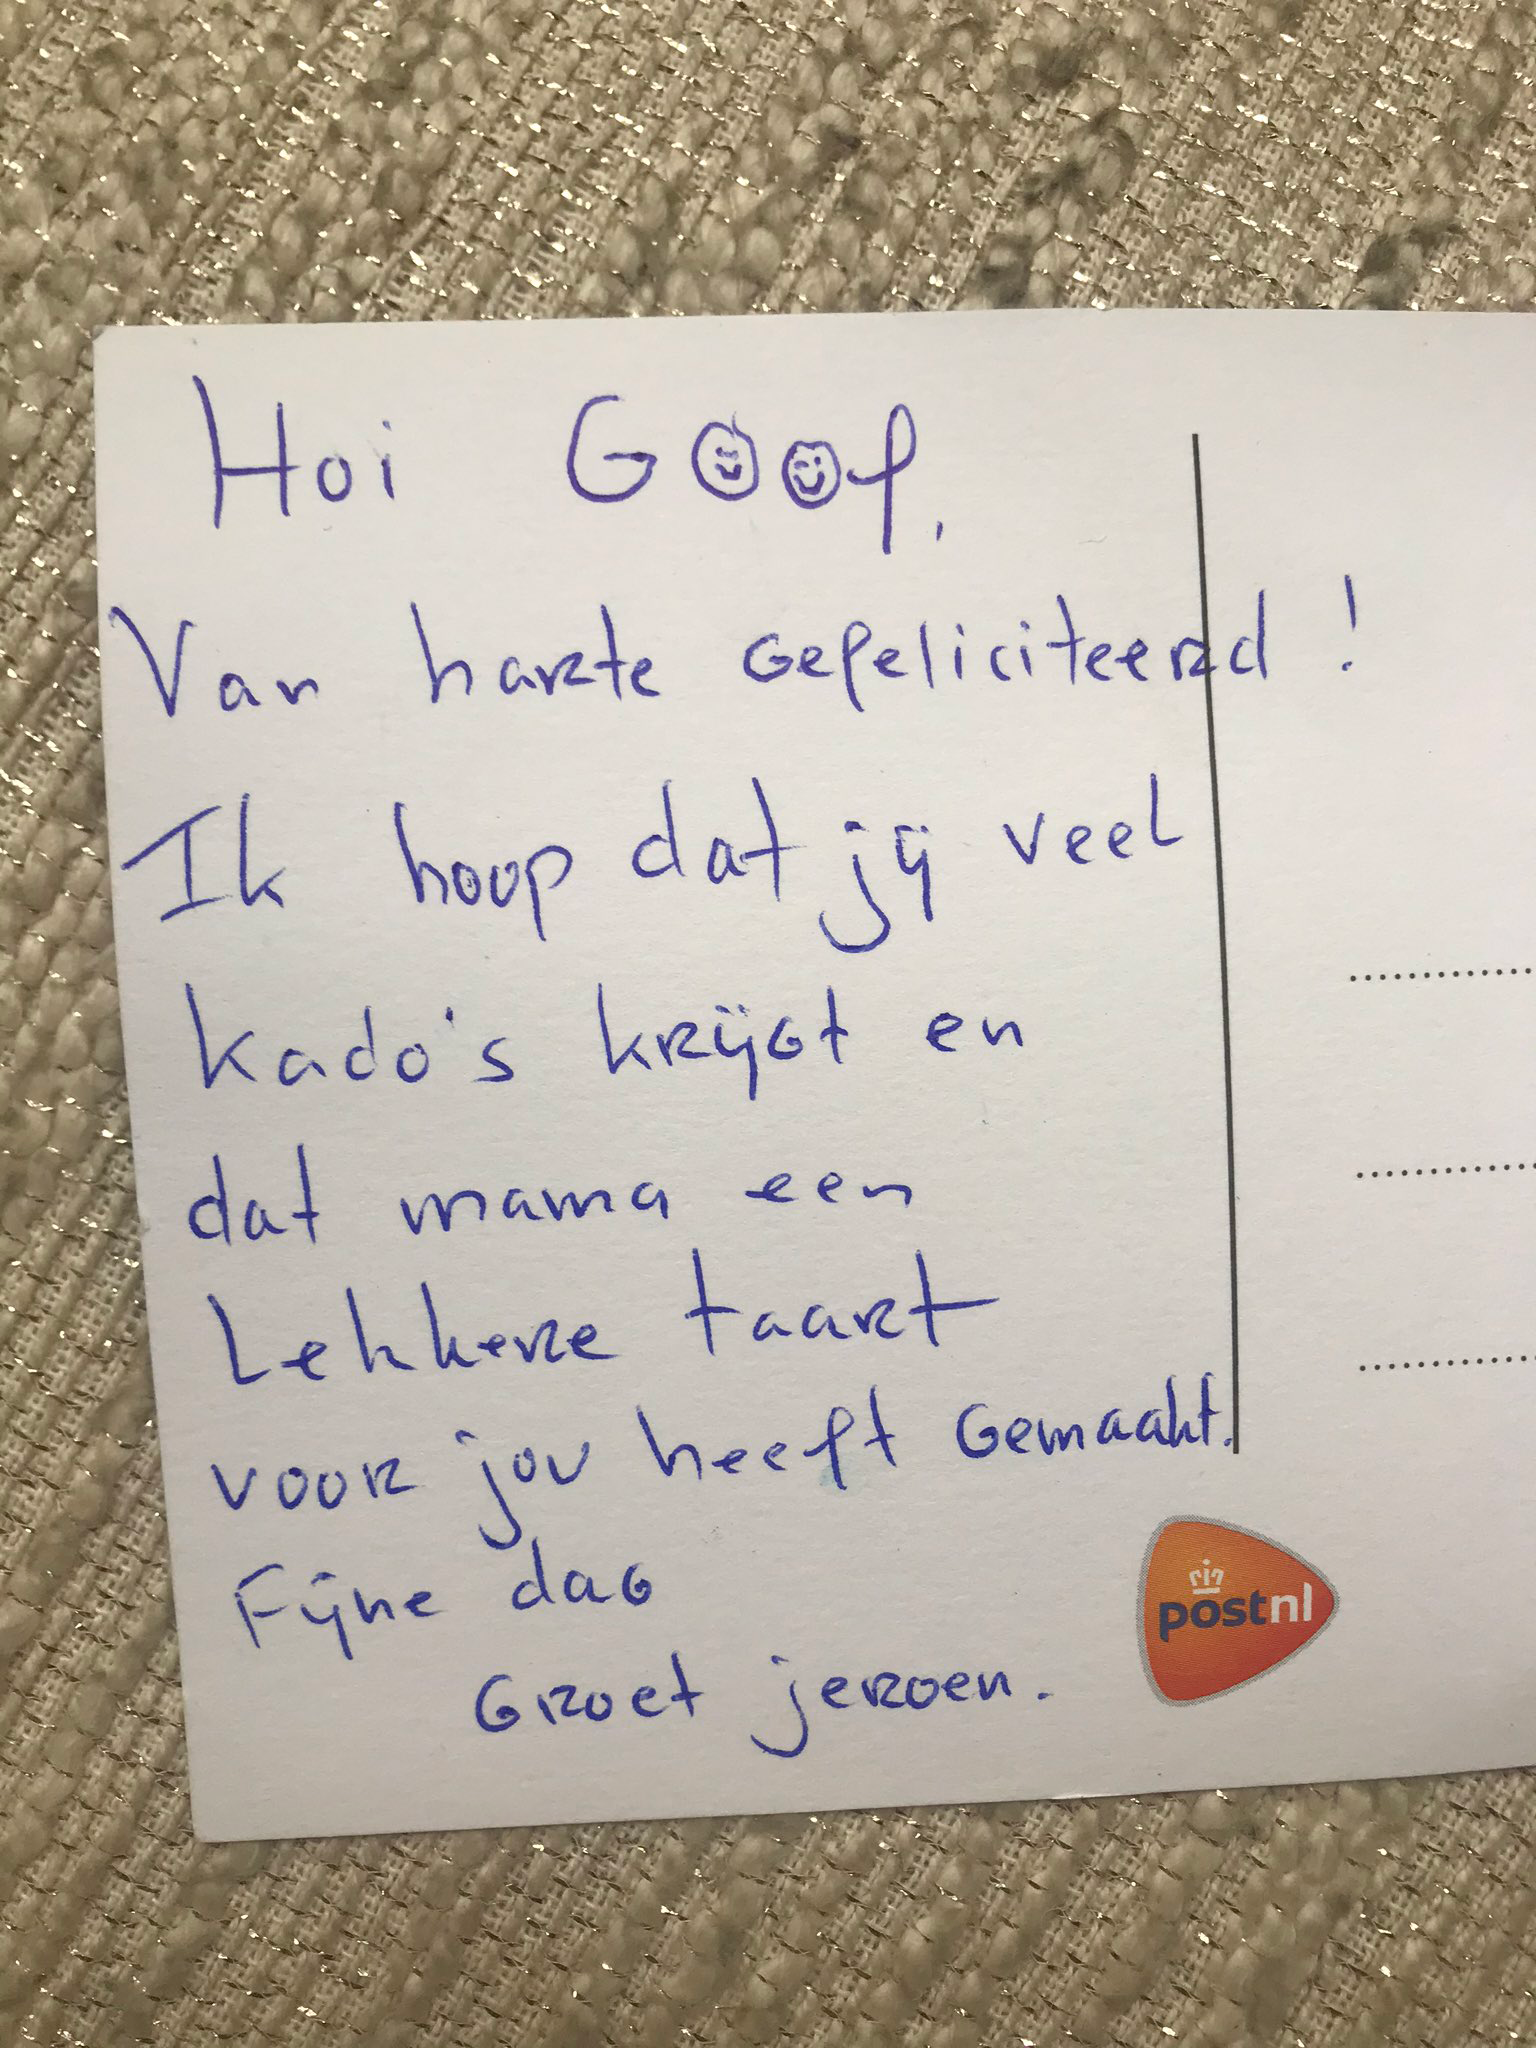 Hoi Goof,
Van harte gefeliciteerd !
Ik hoop dat jij veel
kado's krijgt en
dat mama een
Lekkere taart
voor jou heeft gemaakt.
Fijne dag
Groet jeroen.
postnl